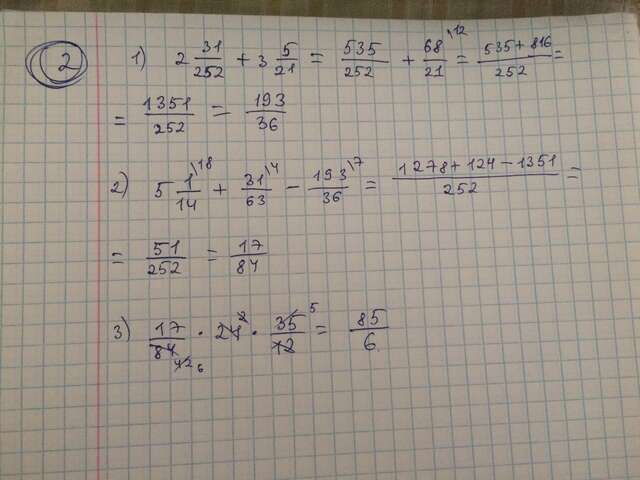 2
1) 2 31/252 + 3 5/21 = 535/252 + 68/21 \12 = (535+816)/252 =
= 1351/252 = 193/36
2) 5 1/14 \18 + 31/63 \4 - 193/36 \7 = (1278+124-1351)/252 =
= 51/252 = 17/84
3) 17/84 42 6 · 24 2 · 35 5/12 = 85/6